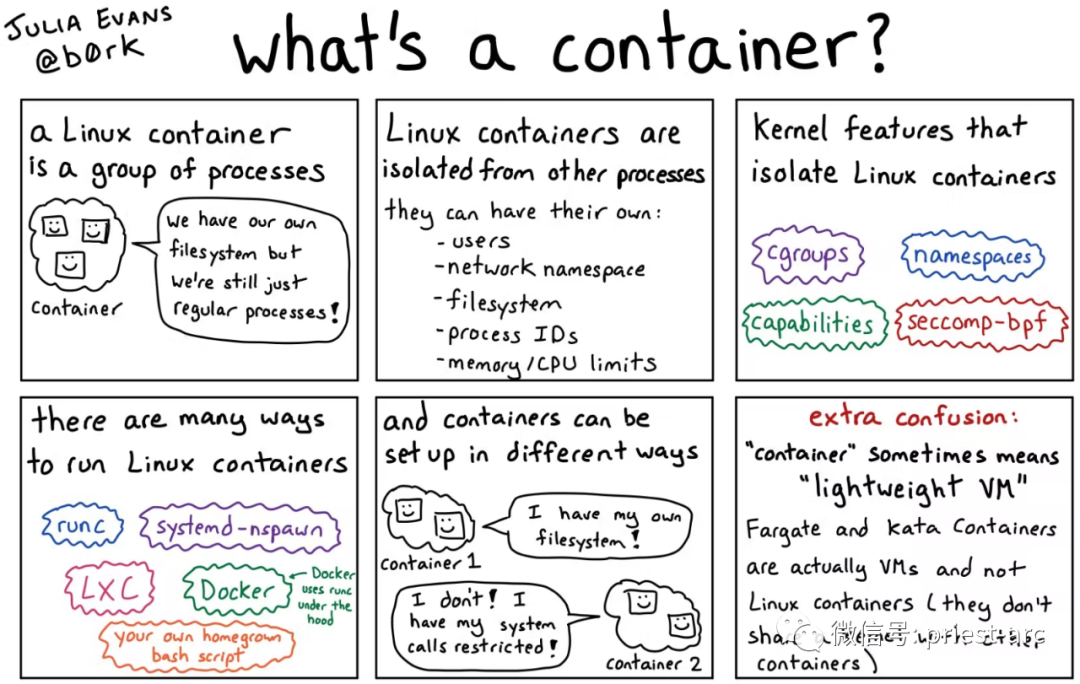 JULIA EVANS
@b0rk
what's a container?
a Linux container
is a group of processes
we have our own
filesystem but
we're still just
regular processes!
container
Linux containers are
isolated from other processes
they can have their own:
- users
- network namespace
- filesystem
- process IDs
- memory/CPU limits
Kernel features that
isolate Linux containers
cgroups
namespaces
capabilities
seccomp-bpf
there are many ways
to run Linux containers
runc
systemd-nspawn
LXC
Docker
Docker
uses runc
under the
hood
your own homegrown
bash script
and containers can be
set up in different ways
I have my own
filesystem!
container 1
I don't! I
have my system
calls restricted!
container 2
extra confusion:
"container" sometimes means
"lightweight VM"
Fargate and Kata Containers
are actually VMs and not
Linux containers (they don't
share a kernel with other
containers)
微信号: priest-arc